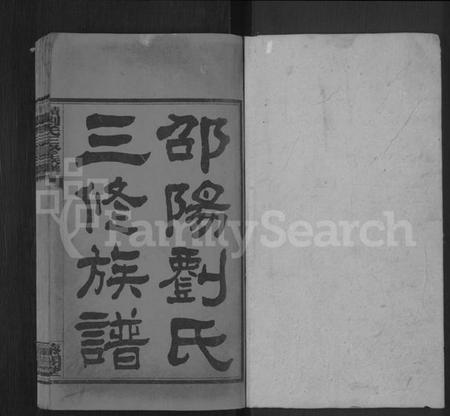 邵陽劉氏
三修族譜
FamilySearch